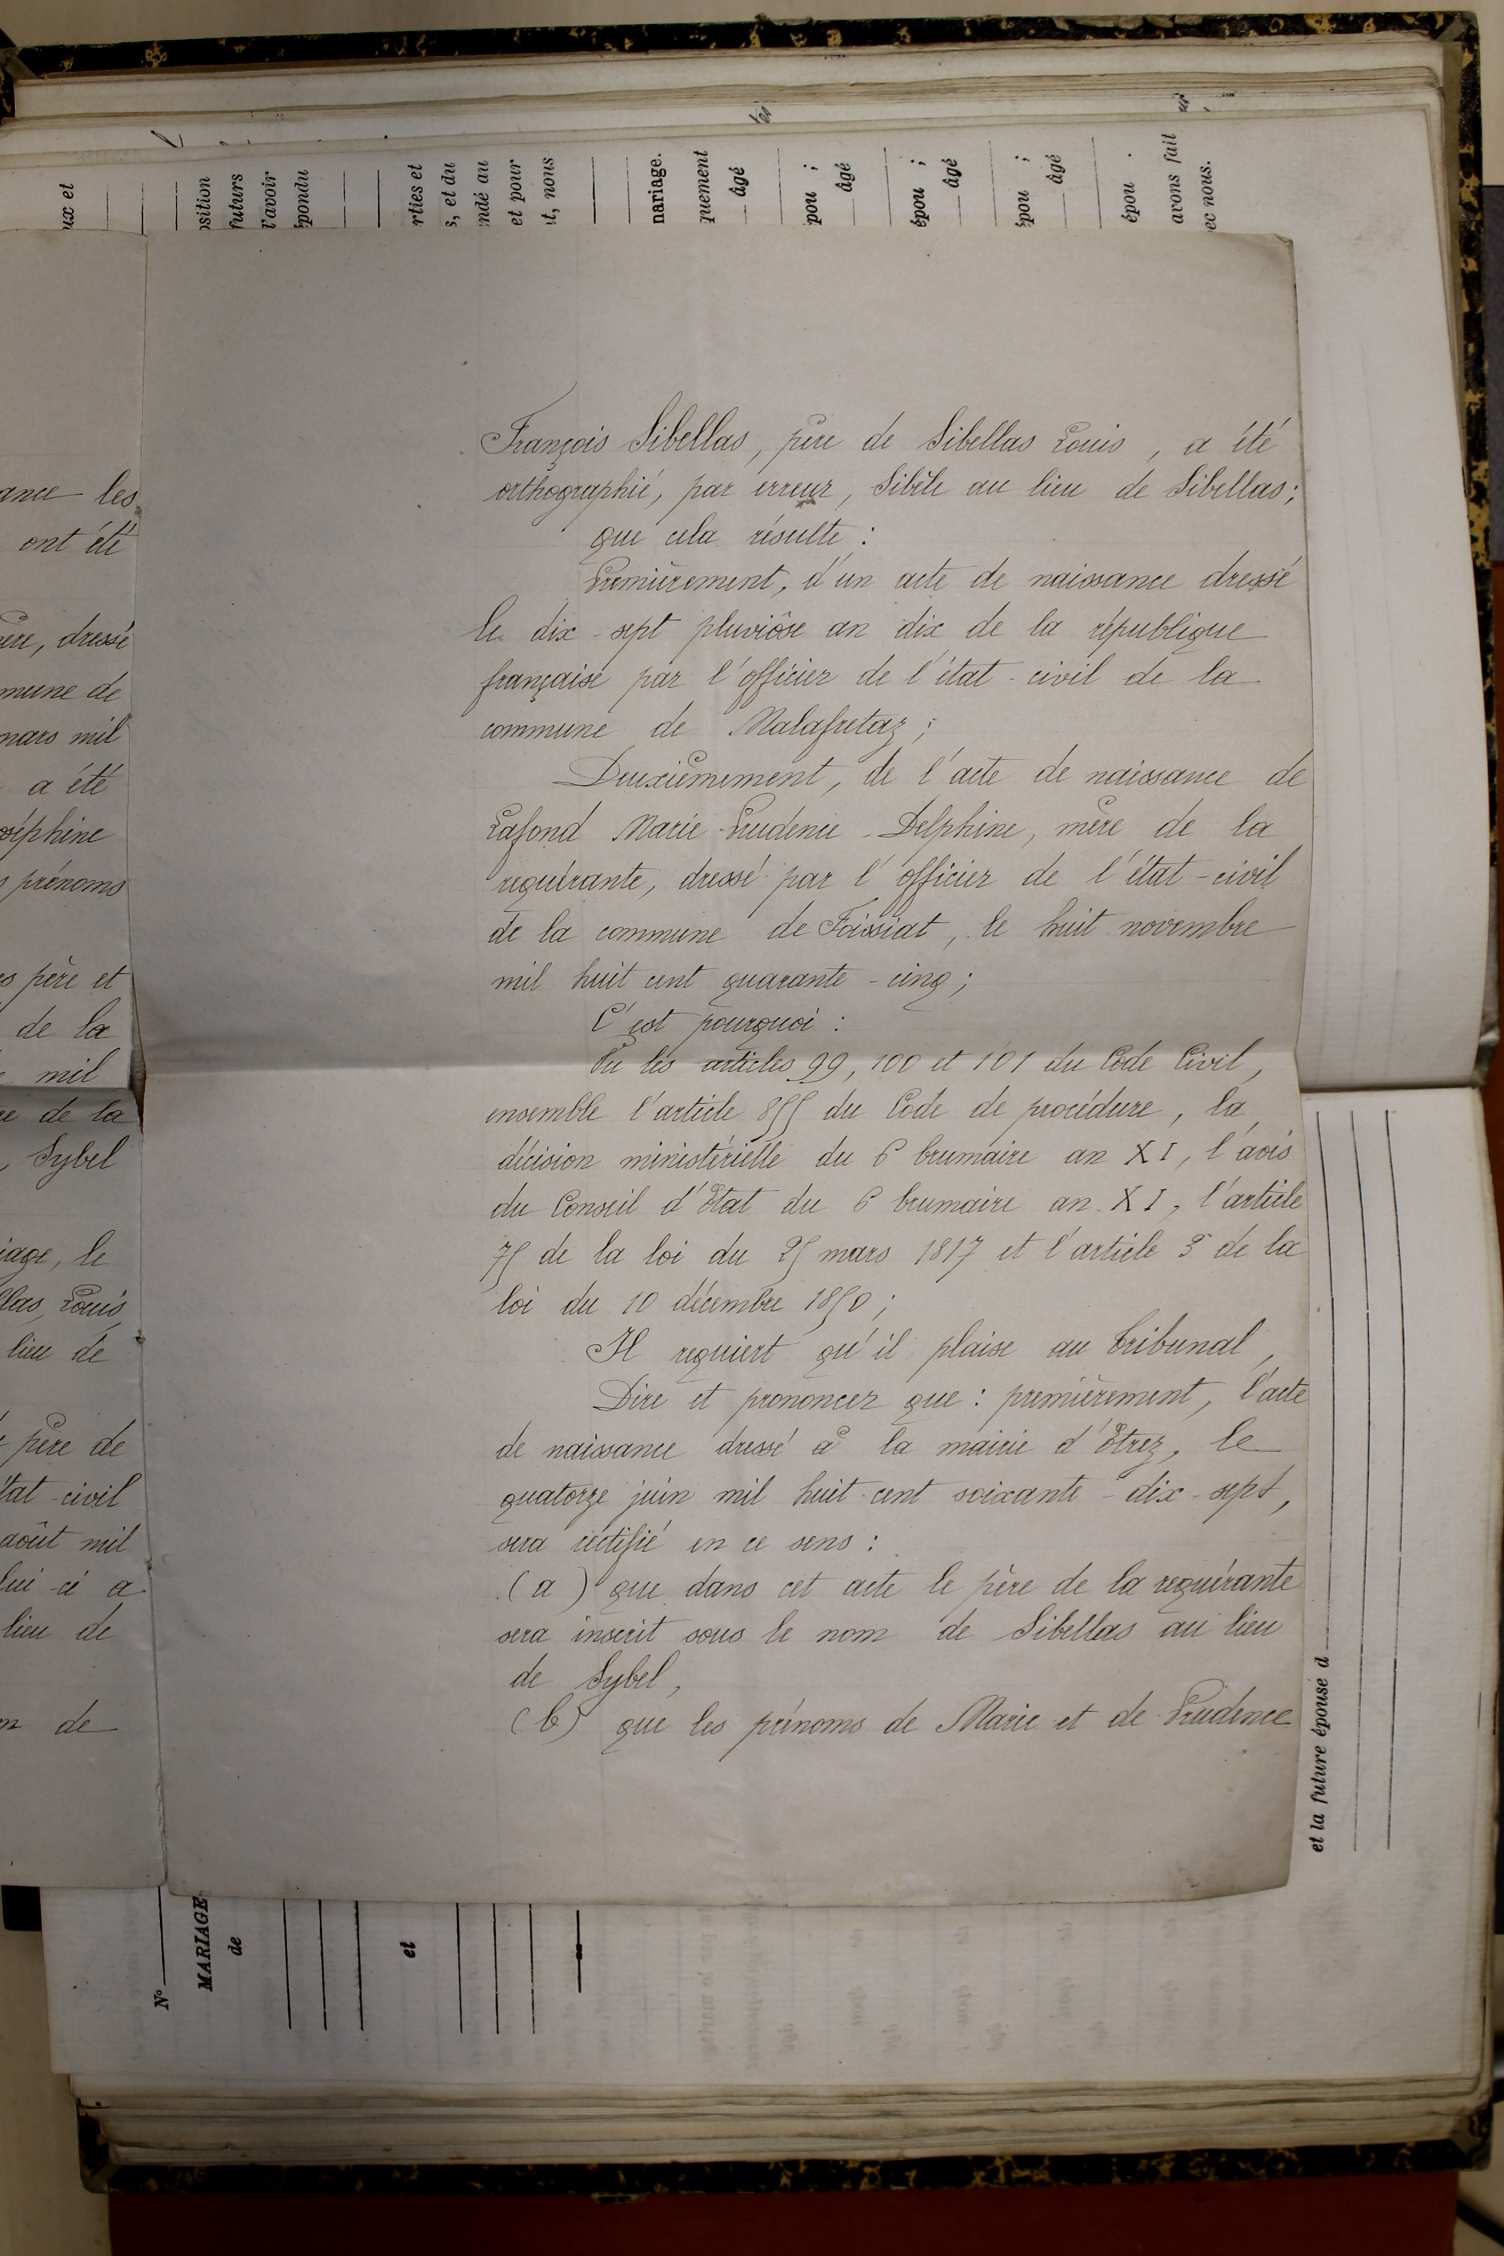 François Sibellas, père de Sibellas Louis, a été
orthographié, par erreur, Sibèle au lieu de Sibellas;
que cela résulte :
Premièrement, d'un acte de naissance dressé
le dix-sept pluviôse an dix de la république
française par l'officier de l'état-civil de la
commune de Malafretaz;
Deuxièmement, de l'acte de naissance de
Lafond Marie-Prudence-Delphine, mère de la
requérante, dressé par l'officier de l'état-civil
de la commune de Foissiat, le huit novembre
mil huit cent quarante-cinq;
C'est pourquoi :
Vu les articles 99, 100 et 101 du Code Civil,
ensemble l'article 855 du Code de procédure, la
décision ministérielle du 6 brumaire an XI, l'avis
du Conseil d'Etat du 6 brumaire an XI, l'article
75 de la loi du 25 mars 1817 et l'article 3 de la
loi du 10 décembre 1850;
Il requiert qu'il plaise au tribunal,
Dire et prononcer que : premièrement, l'acte
de naissance dressé à la mairie d'Etrez, le
quatorze juin mil huit-cent soixante-dix-sept,
sera rectifié en ce sens :
(a) que dans cet acte le père de la requérante
sera inscrit sous le nom de Sibellas au lieu
de Sybel,
(b) que les prénoms de Marie et de Prudence
ance les
ont été
ère, dressé
mune de
mars mil
a été
oséphine
s prénoms
s père et
de la
mil
re de la
, Sybel
iage, le
llas, Louis,
lieu de
père de
état-civil
août mil
lui-ci a
lieu de
n de
ux et
osition
futurs
l'avoir
épondu
rties et
s, et du
ndé au
et pour
nt, nous
mariage.
quement
âgé
épou ;
âgé
épou ;
âgé
épou ;
âgé
épou .
avons fait
ec nous.
N°
MARIAGE
de
et
et la future épouse d